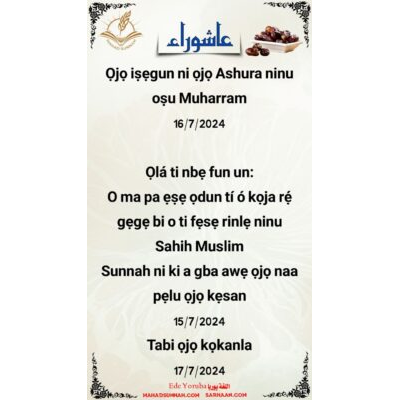 عاشوراء
Ọjọ iṣẹgun ni ọjọ Ashura ninu
oṣu Muharram
16/7/2024
Ọlá ti nbẹ fun un:
O ma pa ẹṣẹ ọdun tí ó kọja rẹ́
gẹgẹ bi o ti fẹsẹ rinlẹ ninu
Sahih Muslim
Sunnah ni ki a gba awẹ ọjọ naa
pẹlu ọjọ kẹsan
15/7/2024
Tabi ọjọ kọkanla
17/7/2024
Ede Yoruba
MAHADSUNNAH.COM SARHAAN.COM